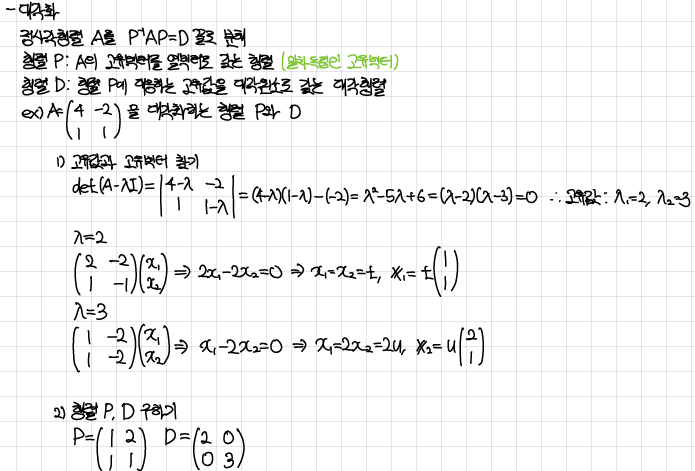 - 대각화
정사각행렬 A를 P⁻¹AP=D 꼴로 분해
행렬 P: A의 고유벡터를 열벡터로 갖는 행렬 (일차독립인 고유벡터)
행렬 D: 행렬 P에 대응하는 고유값을 대각원소로 갖는 대각행렬
ex) A=(4 -2
1 1) 을 대각화하는 행렬 P와 D
1) 고유값과 고유벡터 찾기
det(A-λI)=|4-λ -2
1 1-λ|=(4-λ)(1-λ)-(-2)=λ²-5λ+6=(λ-2)(λ-3)=0 ∴고유값: λ₁=2, λ₂=3
λ=2
(2 -2
1 -1)(x₁
x₂) ⇒ 2x₁-2x₂=0 ⇒ x₁=x₂=t, x₁=t(1
1)
λ=3
(1 -2
1 -2)(x₁
x₂) ⇒ x₁-2x₂=0 ⇒ x₁=2x₂=2u, x₂=u(2
1)
2) 행렬 P, D 구하기
P=(1 2
1 1) D=(2 0
0 3)